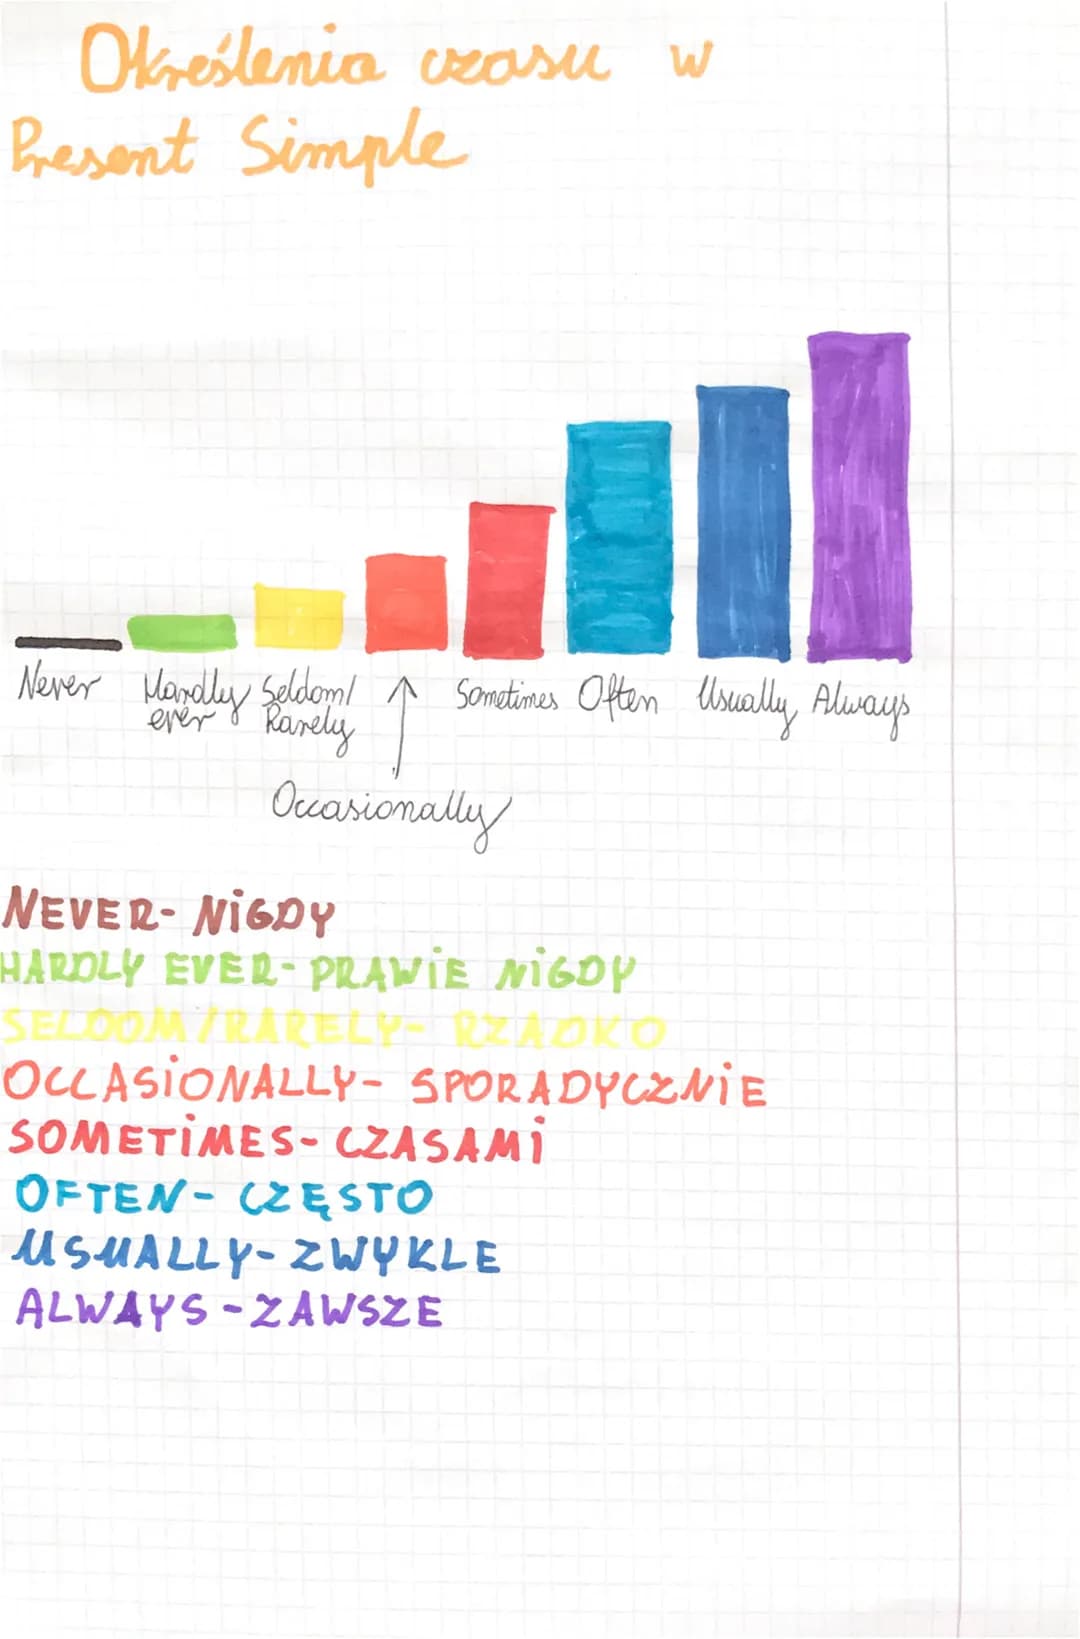 Określenia czasu w
Present Simple
Never Hardly ever Seldom/ Rarely Sometimes Often Usually Always
Occasionally
NEVER- NiGDY
HARDLY EVER- PRAWiE NiGDY
SELDOM/RARELY- RZADKO
OCCASiONALLY- SPORADYCZNiE
SOMETiMES- CZASAMi
OFTEN- CZĘSTO
USUALLY- ZWYKLE
ALWAYS - ZAWSZE